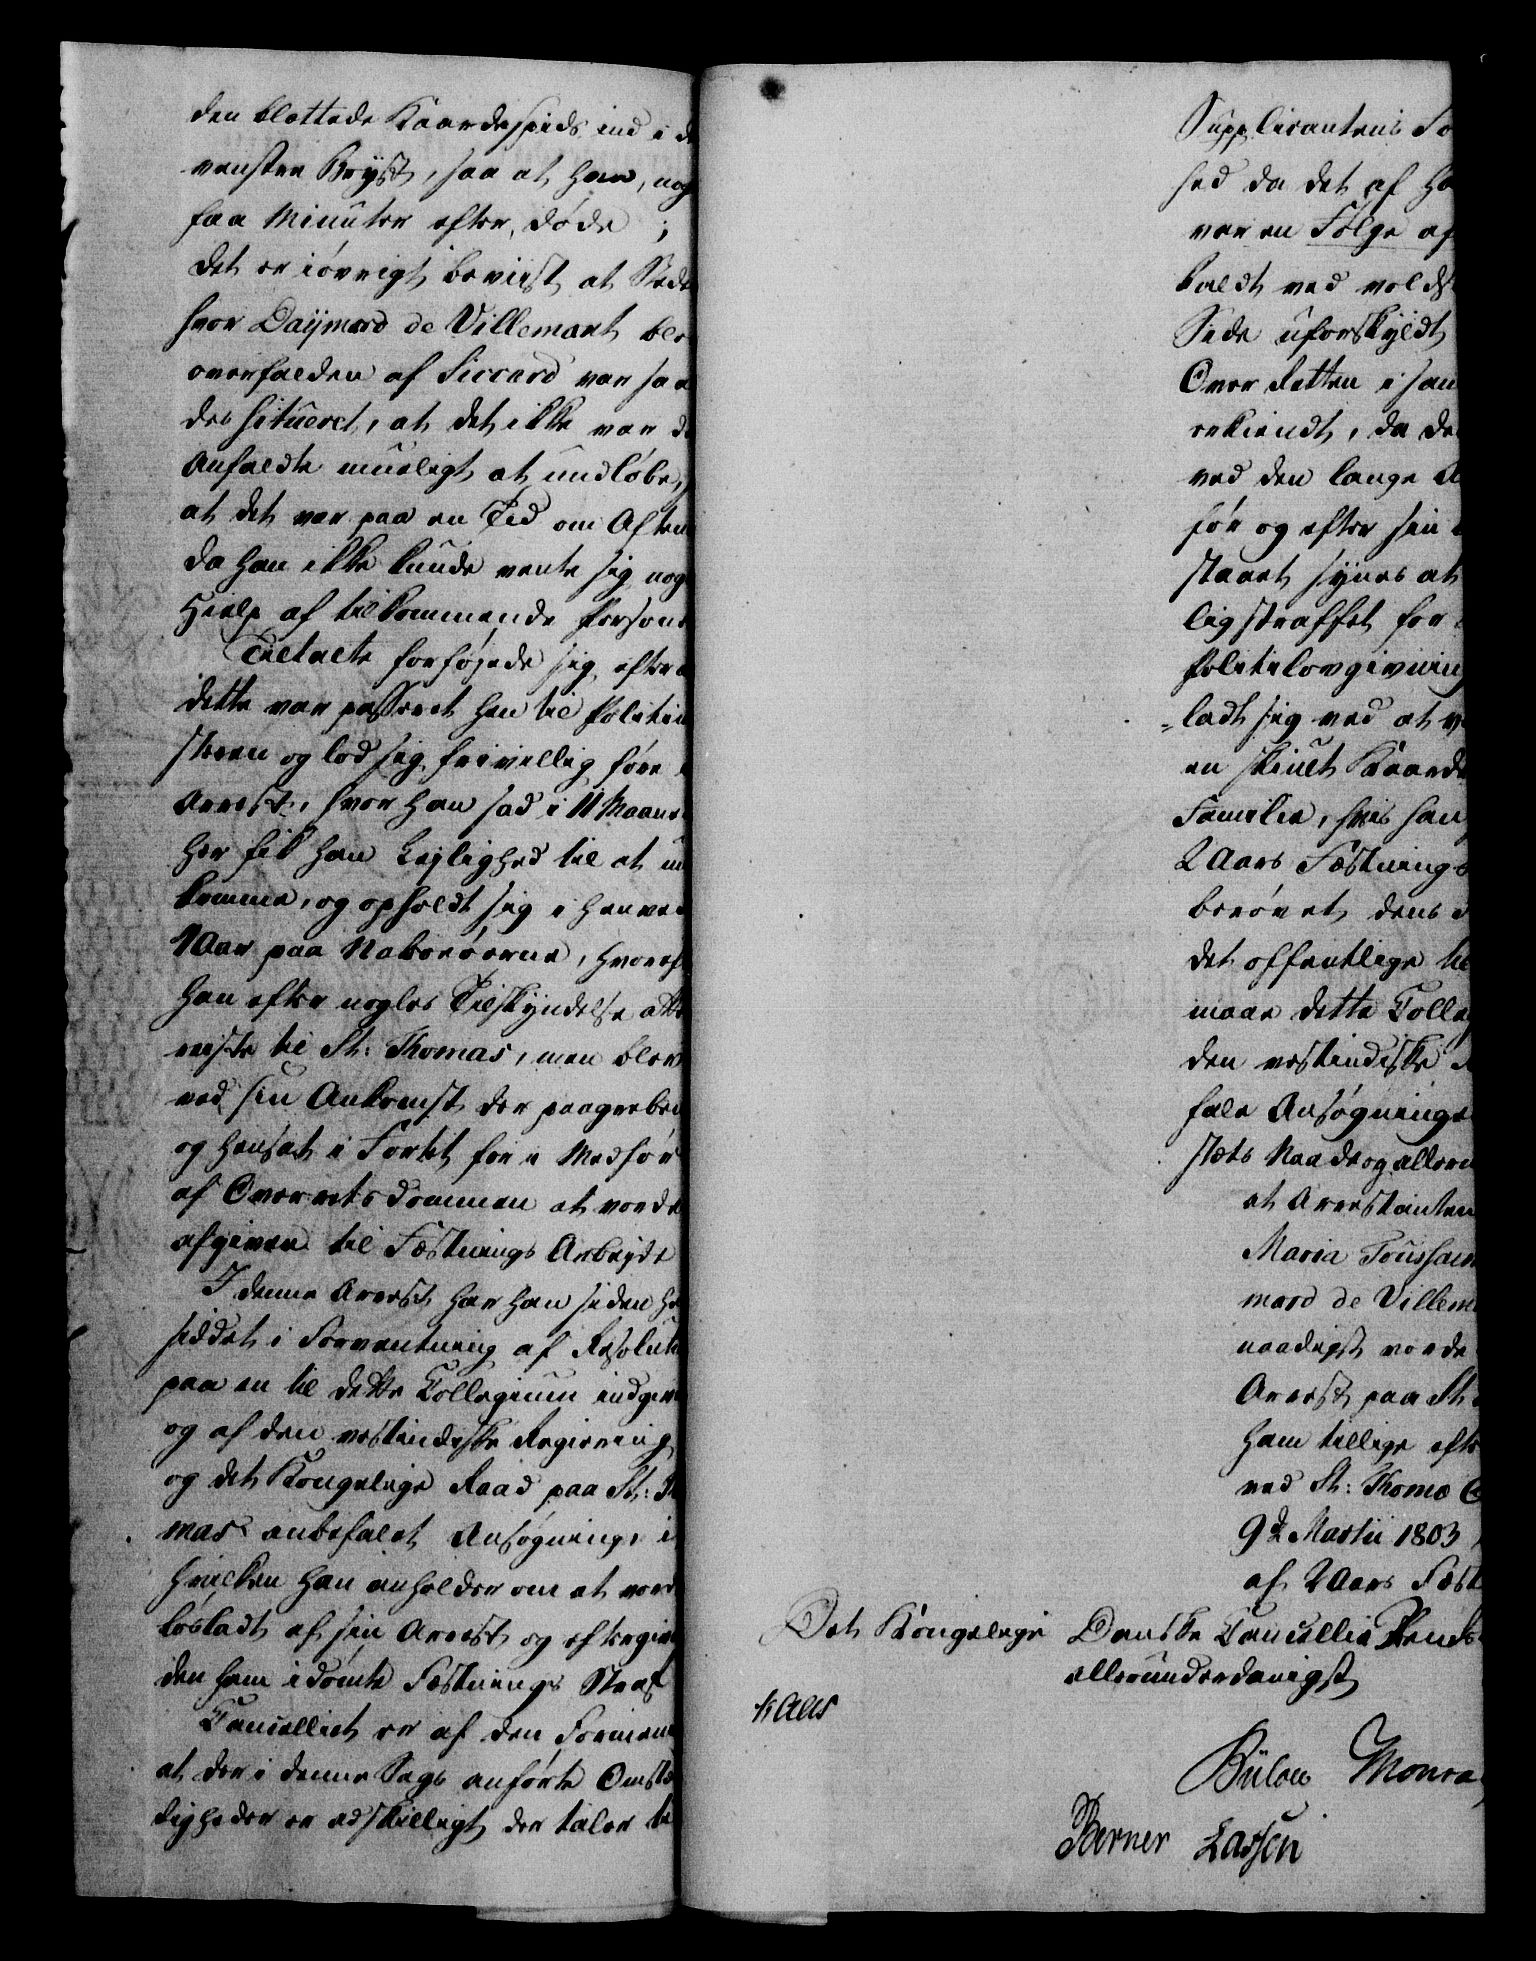 den blottede Kaardespids ind i d
venstre Bryst, saa at han, nog
faa Minuter efter, døde ;
Det er iøvrigt beviist at Stede
hvor Daijmard de Villemant ble
overfalden af Siccard var saa
des situeret, at det ikke var d
Anfaldte mueligt at undløbe,
at det var paa en Tid om Aften
da han ikke kunde vente sig nog
Hielp af tilkommende Person
Tiltalte forføjede sig, efter
dette var passeret hen til Politie
steren og lod sig frivillig føre
Arrest, hvor han sad i 11 Maane
her fik han Lejlighed til at un
komme, og opholdt sig i henved
1 Aar paa Naboeøerne, hvoref
han efter nogles Tilskyndelse atte
reiste til St: Thomas, men blev
ved sin Ankomst der paagreben
og hensat i Fortet for i Medfør
af Overretsdommen at vorde
afgiven til Fæstnings Arbeyde
I denne Arrest har han siden he
siddet i Forventning af Resoluti
paa en til dette Collegium indgive
og af den vestindiske Regiering
og det Kongelige Raad paa St: T
mas anbefalet Ansøgning, i
hvilken han anholder om at vord
løsladt af sin Arrest og eftergive
den ham idømte Fæstnings Straf
Cancelliet er af den Formeni
at der i denne Sags anførte Omstæ
digheder er adskilligt der taler ti
Supplicantens Fo
hed da det af ha
var en Følge af
kaldt ved volds
Side uforskyldt
Over Retten i san
erkiendt, da de
ved den lange A
før og efter sin
staaet, synes at
lig straffet for
Politilovgivning
ladt sig ved at
en skiult Kaarde
Familie, hvis han
2 Aars Fæstnings
berøvet dens
det offentlige til
maae dette Colle
den vestindiske
fale Ansøgninge
stæts Naade og allern
at Arrestanten
Maria Toussain
mard de Villem
naadigst vorde
Arrest paa St
ham tillige efte
ved St: Thomæ O
9d Martii 1803
af 2 Aars Fæst
Det Kongelige Danske Cancellie Rends
allerunderdanigst
Bülow Monra
Berner Lassen